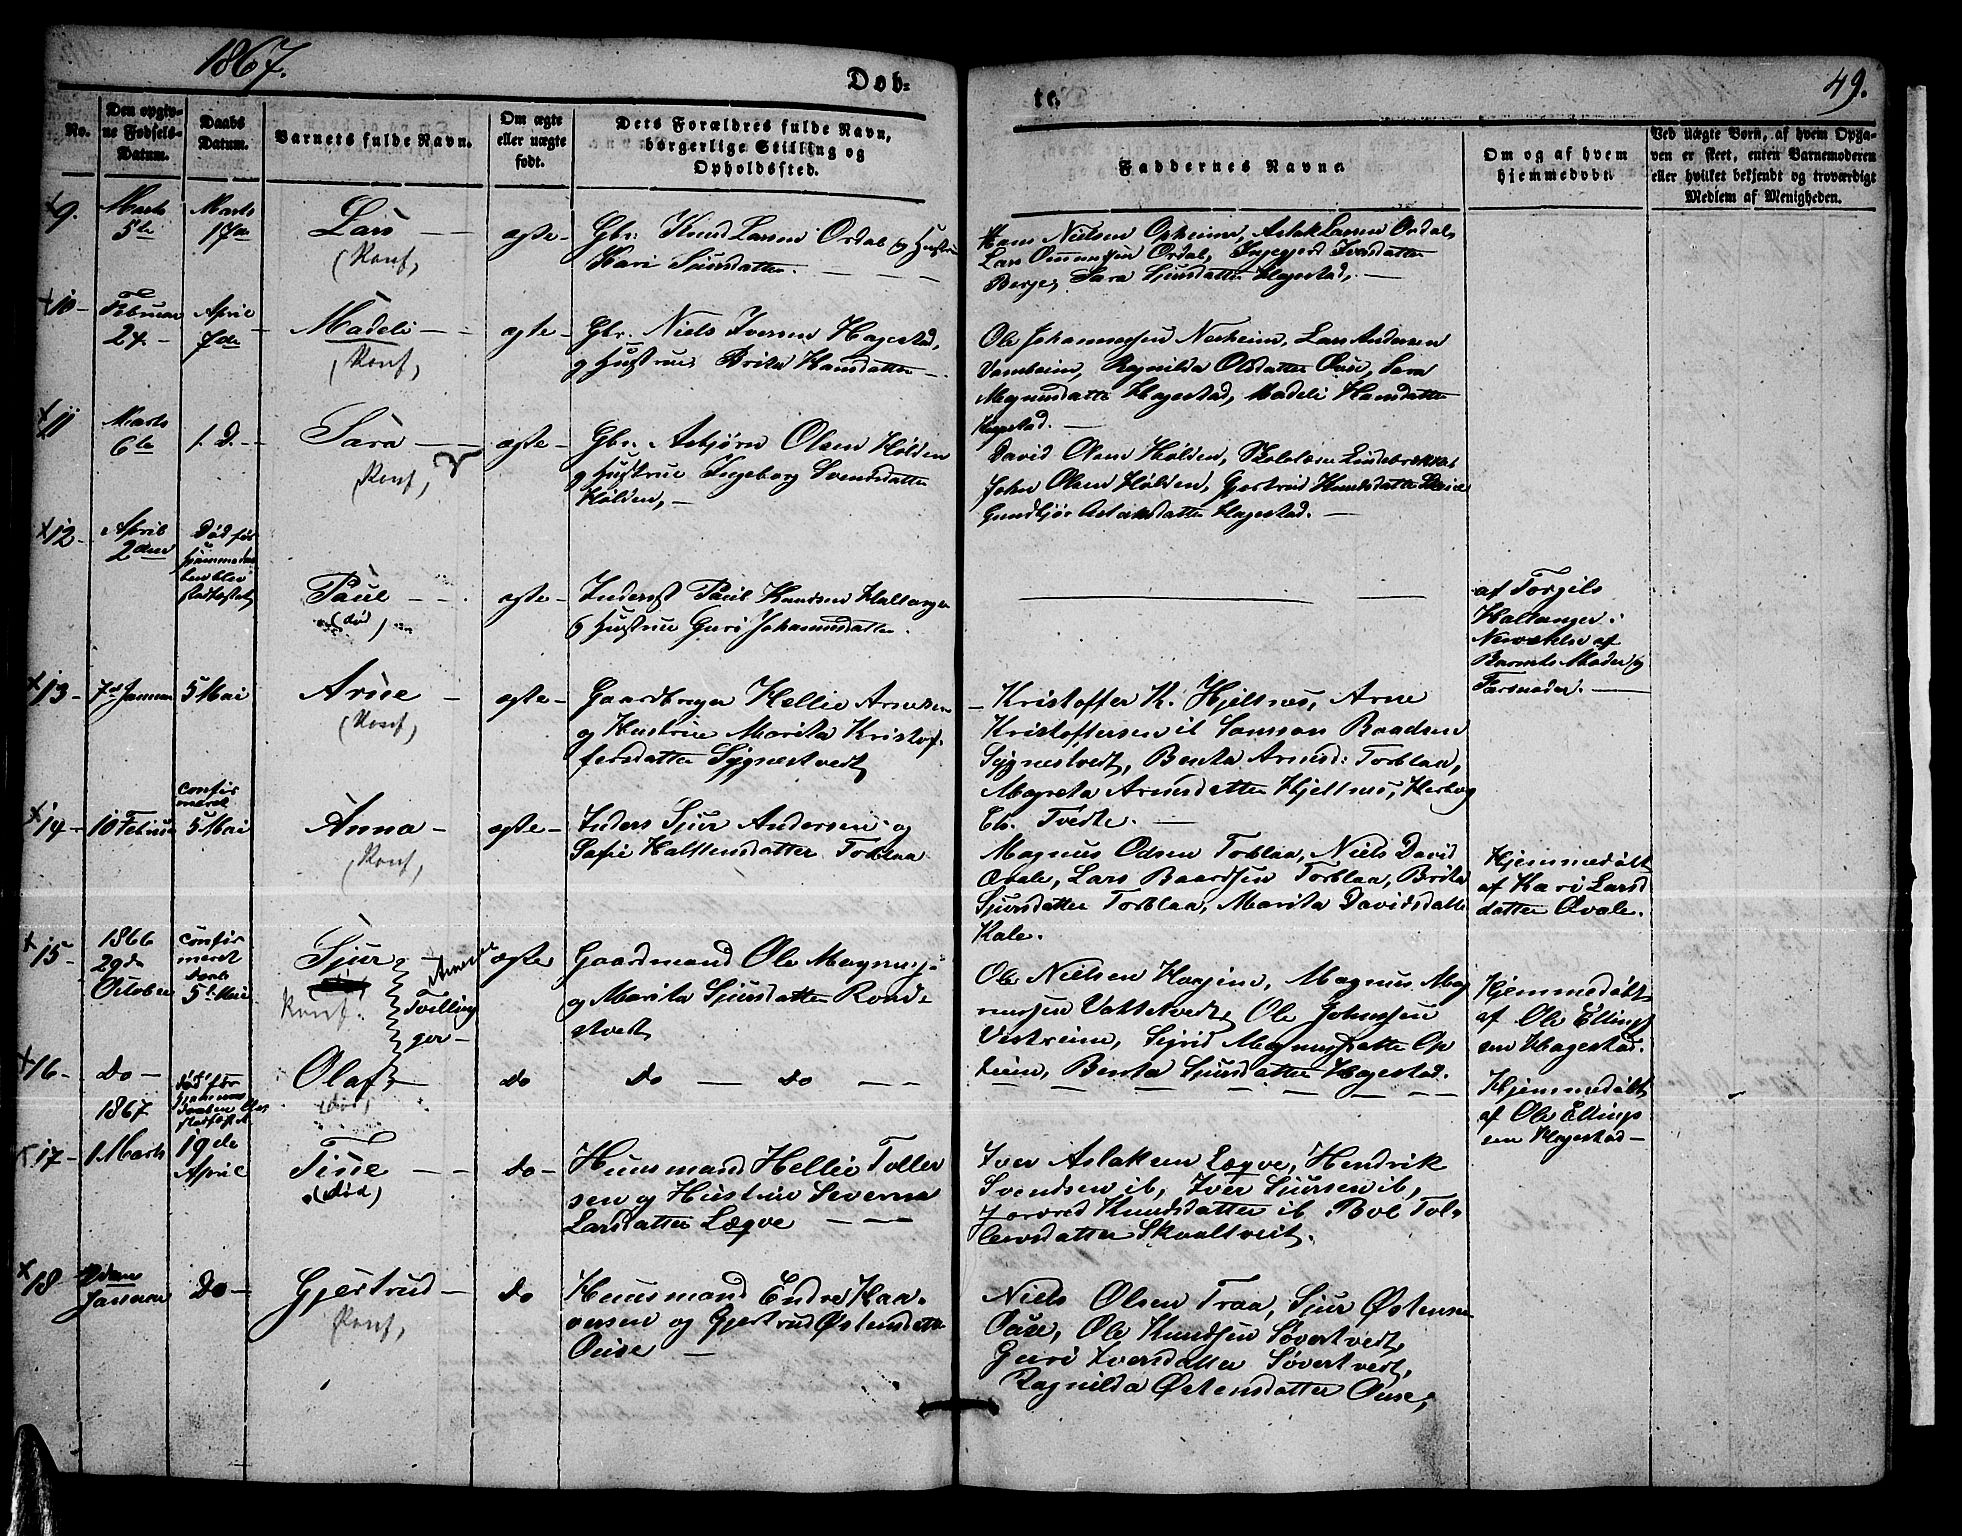 1867.
Døb-
te.
49.
No.
Den opgiv-
ne Fødsels-
Datum.
Daabs
Datum.
Barnets fulde Navn.
Om ægte
eller uægte
født.
Dets Forældres fulde Navn,
borgerlige Stilling og
Opholdssted.
Faddernes Navne.
Om og af hvem
hjemmedøbt.
Ved uægte Børn, af hvem Opga-
ven er skeet, enten Barnemoderen
eller hvilket bekjendt og troværdigt
Medlem af Menigheden.
9.
Marts
5te
Marts
17de
Lars
(Konf,
ægte
Gbr. Knud Larsen Ordal og Hustru
Kari Sjursdatter.
Hans Nielsen Opheim, Aslak Larsen Ordal,
Lars Ordal, Ingegjerd Iversdatter
Berge, Sara Sjursdatter Hagestad,
10
Februar
24.
April
7de
Madeli
(Konf,
ægte
Gbr. Niels Iversen Hagestad,
og Hustrue Brita Hansdatter
Ole Johannessen Nesheim, Lars Andersen
Vambeim, Ragnilda Olsdatter Ouse, Sara
Magnusdatter Hagestad, Madeli Hansdatter
Hagestad.
11
Marts
6te
1. D.
Sara
(Konf,
ægte
Gbr. Asbjørn Olsen Hølden
og Hustrue Ingeborg Svensdatter
Hølden,
David Olsen Hølden, Skolelærer Lindebrække
John Olsen Hølden, Gjertrud Knudsdatter
Gundbjør Hagestad.
12
April
2den
Død før
hjemmedaa-
ben blev
stadfæstet,
Paul
(død)
ægte
Inderst Paul Knudsen Haltanger
og Hustrue Guri Johannesdatter.
af Torgils
Haltanger i
Nerværelse af
Barnets Moder og
Farmoder.
13
7de Januar
5 Mai
Arne
(Konf,
ægte
Gaardbruger Hellie Arnesen
og Hustrue Marita Kristof-
fersdatter Sygnestvedt
Kristoffer K. Hjeltnes, Arne
Kristoffersen ib Samson Baadsen
Sygnestvedt, Benta Arnesd: Torblaa,
Magreta Arnesdatter Hjeltnes, Herborg
Tvedte.
14
10 Februar
confir
meret
5 Mai
Anna
(Konf,
ægte
Inders Sjur Andersen og
Safie Halstensdatter Torblaa
Magnus Odsen Torblaa, Niels David
Øvale, Lars Baardsen Torblaa, Brita
Sjursdatter Torblaa, Marita Davidsdatter
Kale.
Hjemmedøbt
af Kari Lars
datter Øvale.
15
1866
29de
October
confir
meret
Daab
5te Mai
Sjur
Konf.
Tvillin
ger
ægte
Gaardmand Ole Magnus-
og Marita Sjursdatter Rond-
stvedt
Ole Nielsen Haajem, Magnus Mag
nussen Vattetvedt, Ole Johnsen
Vestreim, Sigrid Magnusdatter Op
heim, Benta Sjursdatter Hagestad.
Hjemmedøbt
af Ole Ellings
sen Hagestad.
16
do
død før
Olaf
(død,
do
do do
Hjemmedøbt
af Ole Ellings
sen Hagestad
17
1867
1 Marts
19de
April
Tine
(død)
do
Huusmand Hellie Toller
sen og Hustrue Severine
Larsdatter Lægve
Iver Aslaksen Lægve, Hendrik
Svendsen ib, Iver Sjursen ib,
Jorored Knudsdatter ib Bol Tol-
lersdatter Skaaltveit.
18
2den
Januar
Do
Gjertrud
Konf,
do
Huusmand Endre Haa-
vensen og Gjertrud Østensdatter
Ouse
Niels Olsen Traa, Sjur Østensen
Ouse, Ole Knudsen Søvertvedt,
Guri Iversdatter Søvertvedt,
Ragnilda Østensdatter Ouse,